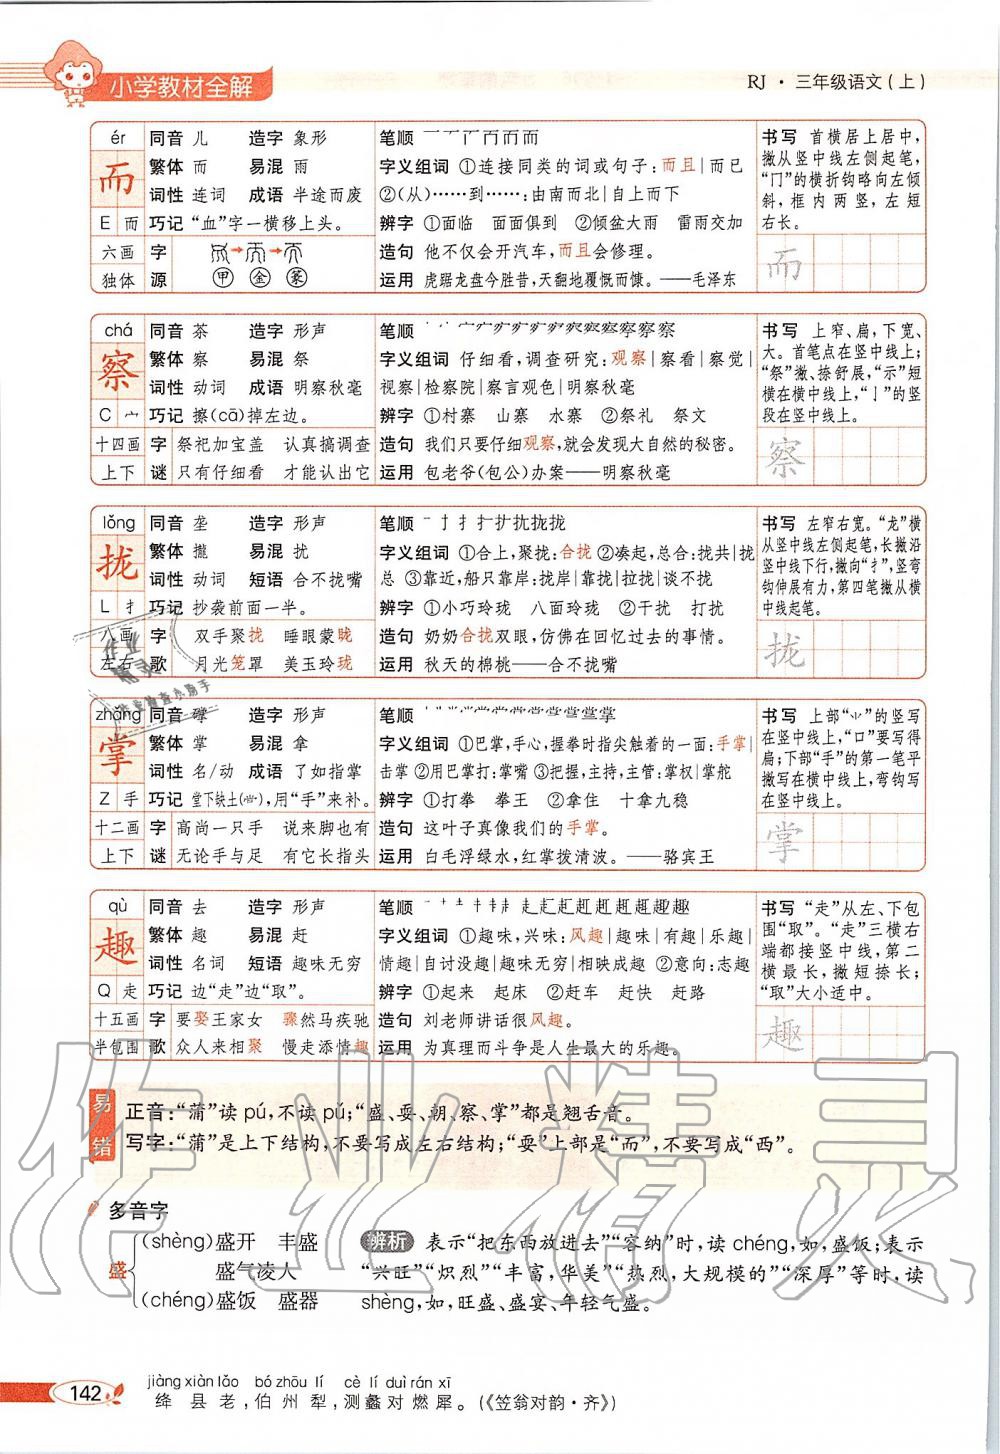 小学教材全解
RJ · 三年级语文(上)
ér
而
E 而
六画
独体
同音 儿 造字 象形
繁体 而 易混 雨
词性 连词 成语 半途而废
巧记 “血”字一横移上头。
字源
甲 金 篆
笔顺
字义组词 ①连接同类的词或句子:而且|而已
②(从)……到……:由南而北|自上而下
辨字 ①面临 面面俱到 ②倾盆大雨 雷雨交加
造句 他不仅会开汽车,而且会修理。
运用 虎踞龙盘今胜昔,天翻地覆慨而慷。——毛泽东
书写 首横居上居中,
撇从竖中线左侧起笔,
“冂”的横折钩略向左倾
斜,框内两竖,左短
右长。
而
chá
察
C 宀
十四画
上下
同音 茶 造字 形声
繁体 察 易混 祭
词性 动词 成语 明察秋毫
巧记 擦(cā)掉左边。
字谜
祭祀加宝盖 认真搞调查
只有仔细看 才能认出它
笔顺
字义组词 仔细看,调查研究:观察|察看|察觉|
视察|检察院|察言观色|明察秋毫
辨字 ①村寨 山寨 水寨 ②祭礼 祭文
造句 我们只要仔细观察,就会发现大自然的秘密。
运用 包老爷(包公)办案——明察秋毫
书写 上窄、扁,下宽、
大。首笔点在竖中线上;
“祭”撇、捺舒展,“示”短
横在横中线上,“亅”的竖
段在竖中线上。
察
lǒng
拢
L 扌
八画
左右
同音 垄 造字 形声
繁体 攏 易混 扰
词性 动词 短语 合不拢嘴
巧记 抄袭前面一半。
字歌
双手聚拢 睡眼蒙眬
月光笼罩 美玉玲珑
笔顺
字义组词 ①合上,聚拢:合拢②凑起,总合:拢共|拢
总 ③靠近,船只靠岸:拢岸|靠拢|拉拢|谈不拢
辨字 ①小巧玲珑 八面玲珑 ②干扰 打扰
造句 奶奶合拢双眼,仿佛在回忆过去的事情。
运用 秋天的棉桃——合不拢嘴
书写 左窄右宽。“龙”横
从竖中线左侧起笔,长撇沿
竖中线下行,撇向“扌”,竖弯
钩伸展有力,第四笔撇从横
中线起笔。
拢
zhǎng
掌
Z 手
十二画
上下
同音 造字 形声
繁体 掌 易混 拿
词性 名/动 成语 了如指掌
巧记 堂下缺土,用“手”来补。
字谜
高尚一只手 说来脚也有
无论手与足 有它长指头
笔顺
字义组词 ①巴掌,手心,握拳时指尖触着的一面:手掌|
击掌 ②用巴掌打:掌嘴 ③把握,主持,主管:掌权|掌舵
辨字 ①打拳 拳王 ②拿住 十拿九稳
造句 这叶子真像我们的手掌。
运用 白毛浮绿水,红掌拨清波。——骆宾王
书写 上部的竖写
在竖中线上,“口”要写得
扁;下部“手”的第一笔平
撇写在横中线上,弯钩写
在竖中线上。
掌
qù
趣
Q 走
十五画
半包围
同音 去 造字 形声
繁体 趣 易混 赶
词性 名词 短语 趣味无穷
巧记 边“走”边“取”。
字歌
要娶王家女 骤然马疾驰
众人来相聚 慢走添情趣
笔顺
字义组词 ①趣味,兴味:风趣|趣味|有趣|乐趣|
情趣|自讨没趣|趣味无穷|相映成趣 ②意向:志趣
辨字 ①起来 起床 ②赶车 赶快 赶路
造句 刘老师讲话很风趣。
运用 为真理而斗争是人生最大的乐趣。
书写 “走”从左、下包
围“取”。“走”三横右
端都接竖中线,第二
横最长,撇短捺长;
“取”大小适中。
趣
易错
正音:“蒲”读 pú,不读 pǔ;“盛、耍、朝、察、掌”都是翘舌音。
写字:“蒲”是上下结构,不要写成左右结构;“耍”上部是“而”,不要写成“西”。
多音字
盛
(shèng)盛开 丰盛
盛气凌人
(chéng)盛饭 盛器
辨析 表示“把东西放进去”“容纳”时,读 chéng,如,盛饭;表示
“兴旺”“炽烈”“丰富,华美”“热烈,大规模的”“深厚”等时,读
shèng,如,旺盛、盛宴、年轻气盛。
作业精灵
142
jiàng xiàn lǎo bó zhōu lí cè lí duì rán xī
绛县老,伯州犁,测蠡对燃犀。(《笠翁对韵·齐》)